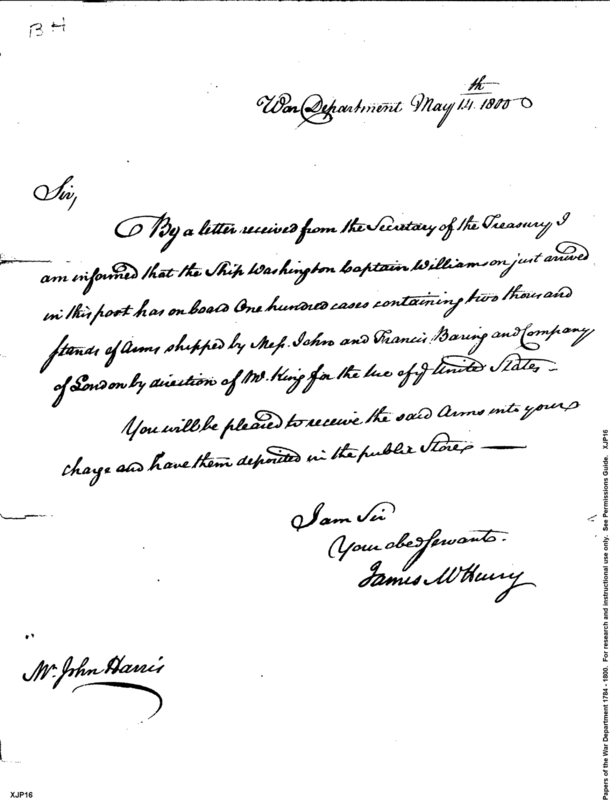 BH
War Department May 14.th 1800
Sir,
By a letter received from the Secretary of the Treasury I
am informed that the Ship Washington Captain Williamson just arrived
in this port has on board One hundred cases containing two thousand
stands of Arms shipped by Mess. John and Francis Baring and Company
of London by direction of Mr. King for the use of ye United States —
You will be pleased to receive the said Arms into your
charge and have them deposited in the public Store —
I am Sir
Your obed Servant.
James McHenry
Mr. John Harris
XJP16
Papers of the War Department 1784 - 1800. For research and instructional use only. See Permissions Guide. XJP16